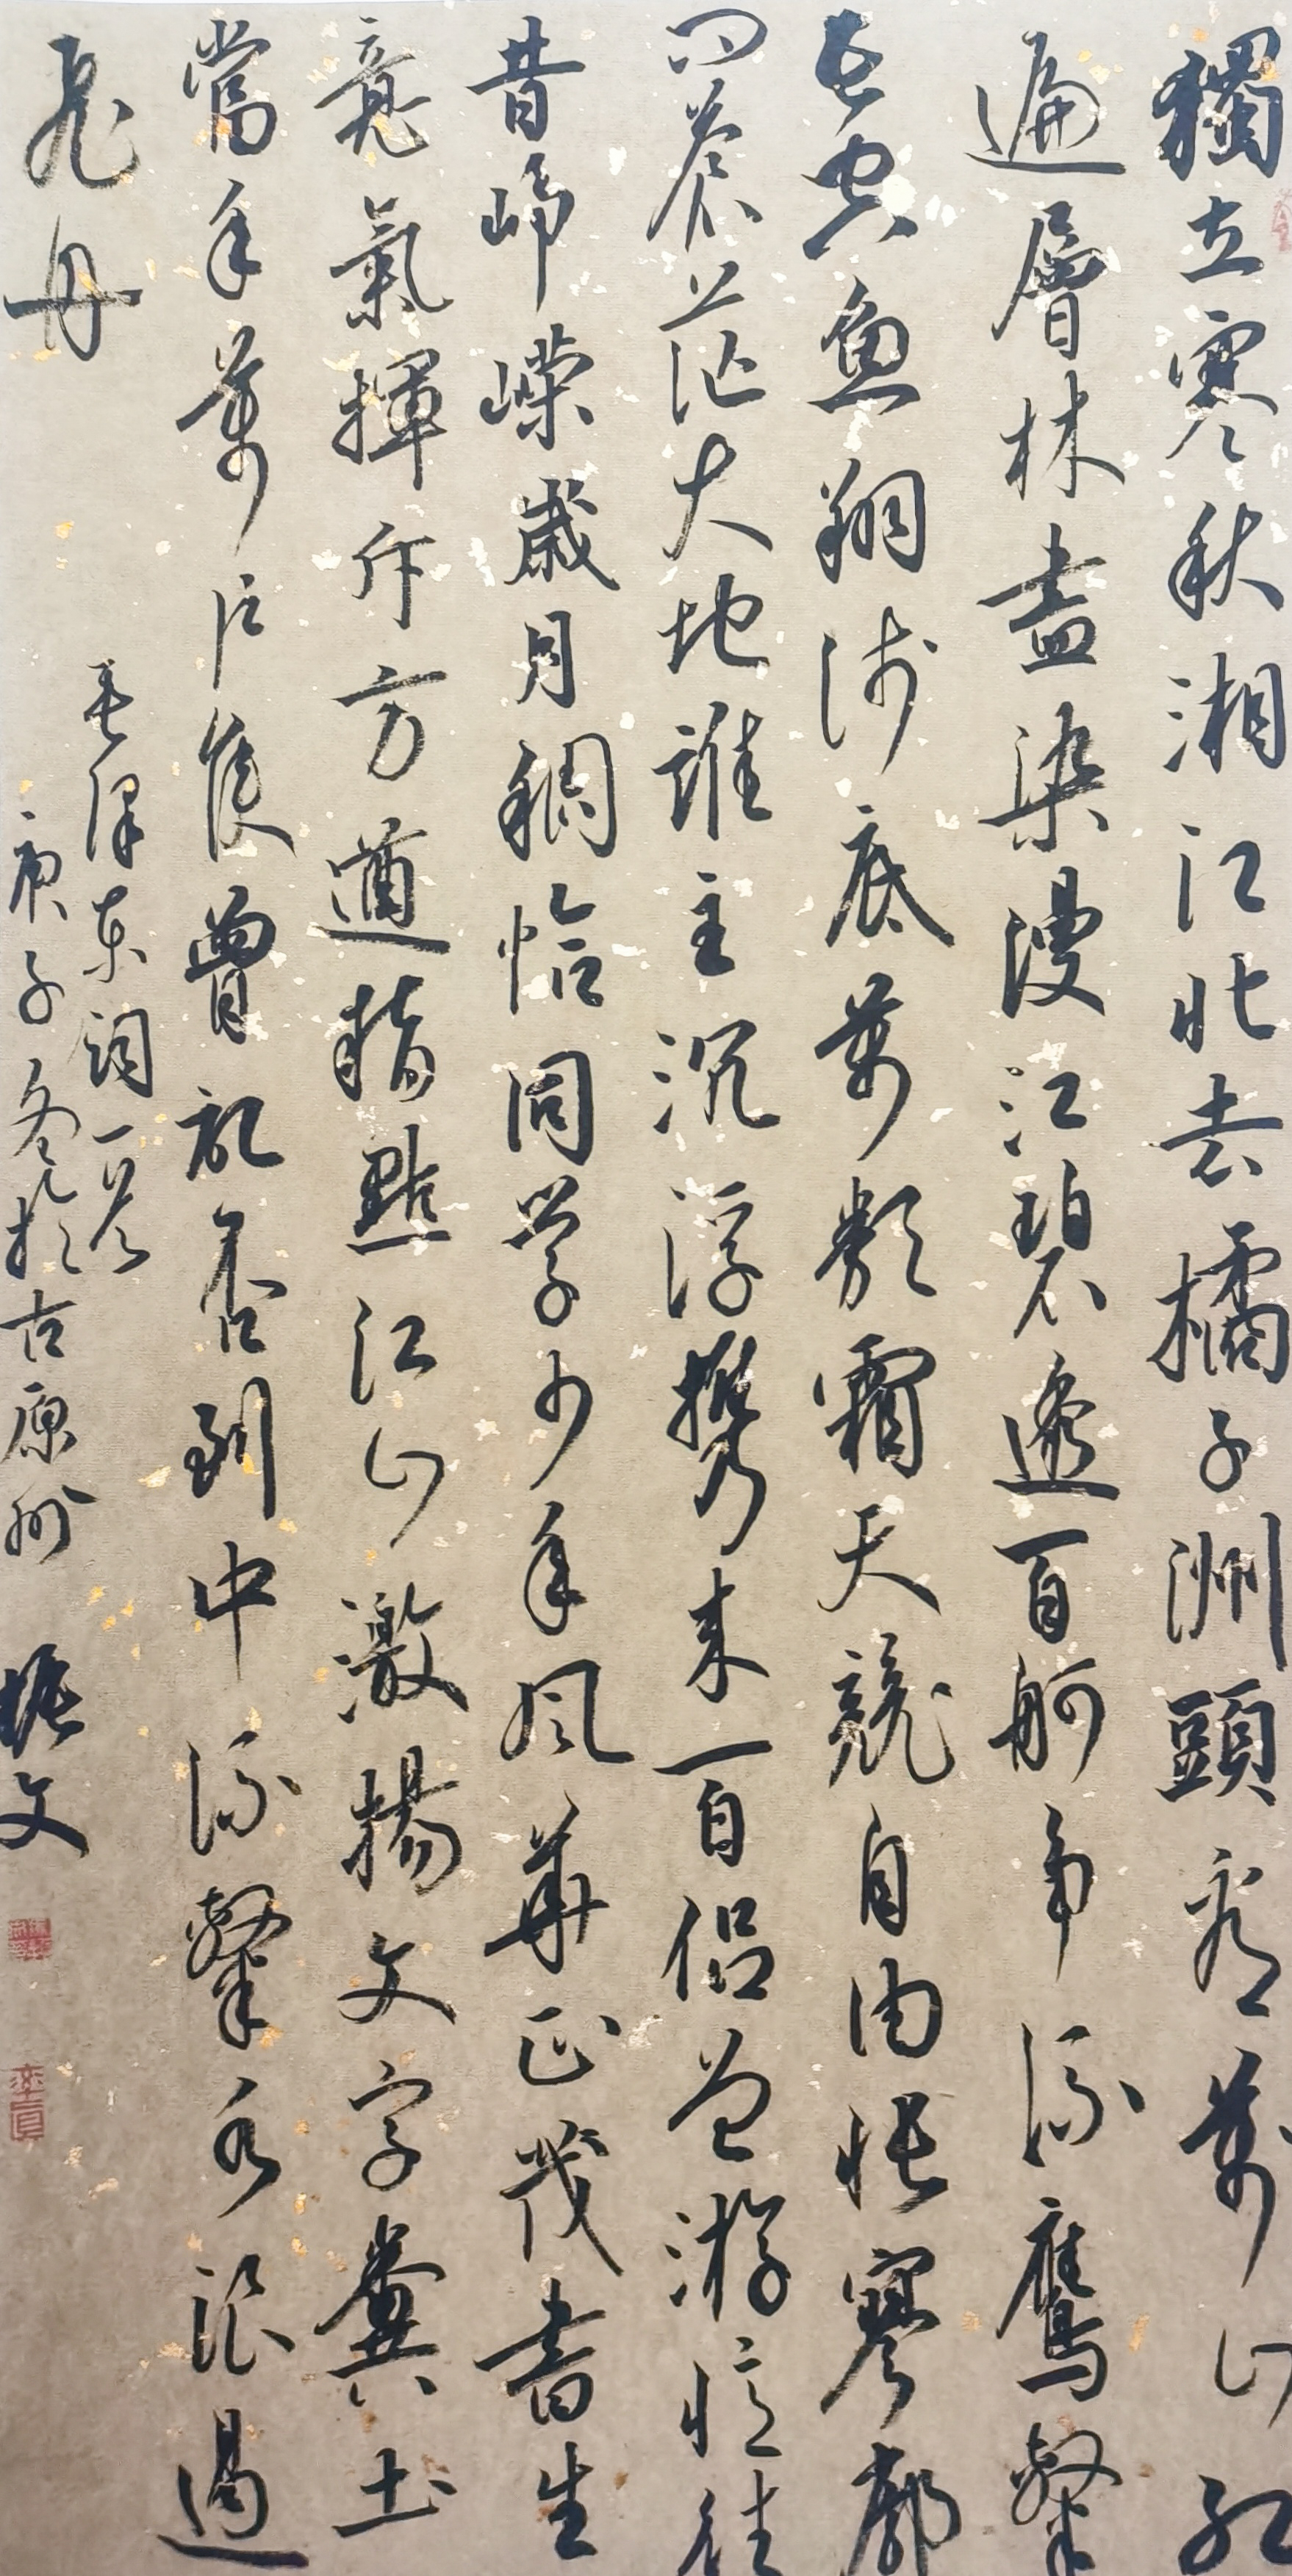 獨立寒秋湘江北去橘子洲頭看萬山紅
遍層林盡染漫江碧透百舸爭流鷹擊
長空魚翔淺底萬類霜天競自由悵寥廓
問蒼茫大地誰主沉浮攜來百侶曾游憶往
昔崢嶸歲月稠恰同學少年風華正茂書生
意氣揮斥方遒指點江山激揚文字糞土
當年萬戶侯曾記否到中流擊水浪遏
飛舟
毛澤東詞一首
庚子冬於古原州
振文